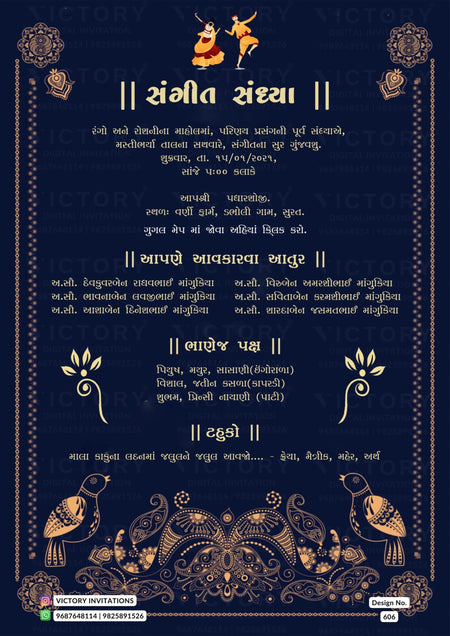 || સંગીત સંધ્યા ||
રંગો અને રોશનીના માહોલમાં, પરિણય પ્રસંગની પૂર્વ સંધ્યાએ,
મસ્તીભર્યા તાલના સથવારે, સંગીતના સુર ગુંજવશુ.
શુક્રવાર, તા. ૧૫/૦૧/૨૦૨૧,
સાંજે ૫:૦૦ કલાકે
આપશ્રી પધારશોજી.
સ્થળઃ વર્ણી ફાર્મ, ડભોલી ગામ, સુરત.
ગુગલ મેપ માં જોવા અહિયાં ક્લિક કરો.
|| આપણે આવકારવા આતુર ||
અ.સૌ. દેવકુવરબેન રાઘવભાઈ માંગુકિયા અ.સૌ. વિરુબેન અમરશીભાઈ માંગુકિયા
અ.સૌ. ભાવનાબેન લવજીભાઈ માંગુકિયા અ.સૌ. સવિતાબેન કરમશીભાઈ માંગુકિયા
અ.સૌ. આશાબેન દિનેશભાઈ માંગુકિયા અ.સૌ. શારદાબેન જસમતભાઈ માંગુકિયા
|| ભાણેજ પક્ષ ||
પિયુષ, મયુર, સાસાણી(હંગોરાળા)
વિશાલ, જતીન કસળા(કાપરડી)
શુભમ, પ્રિન્સી નાયાણી (પાટી)
|| ટહુકો ||
માલા કાકુના લદનમાં જલુલને જલુલ આવજો.... - ફેયા, મૈત્રીક, મહેર, અર્થ
VICTORY INVITATIONS
9687648114 | 9825891526
Design No.
606